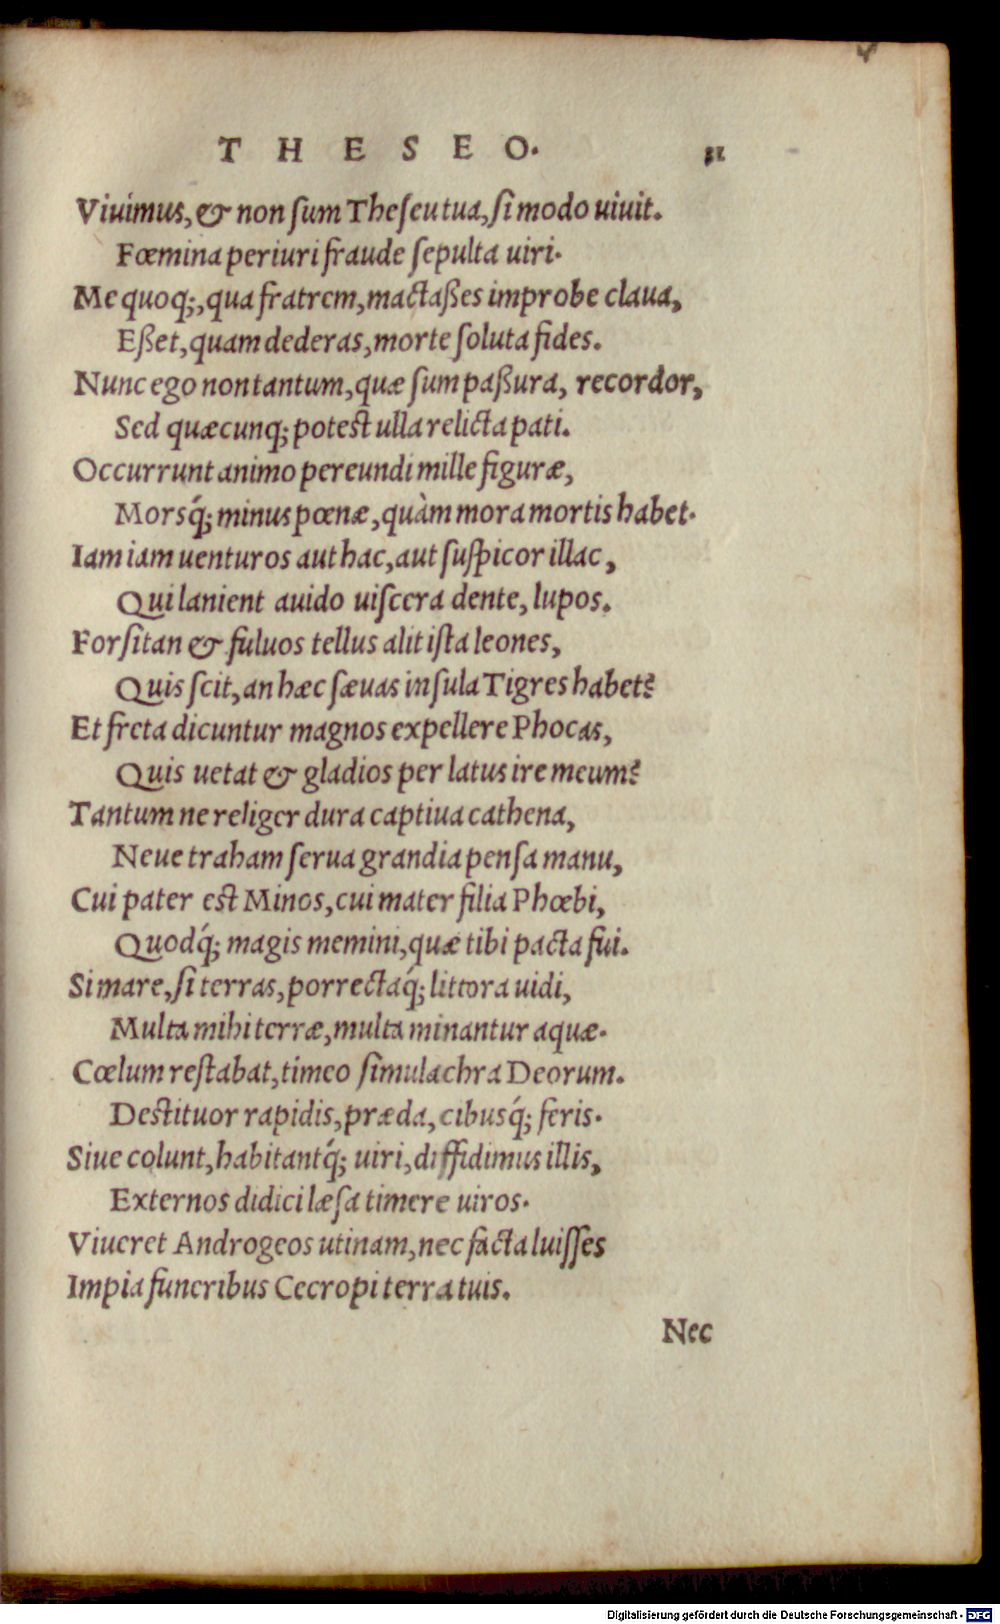 THESEO. 31
Viuimus, & non sum Theseu tua, si modo uiuit.
Fœmina periuri fraude sepulta uiri.
Me quoq;, qua fratrem, mactaßes improbe claua,
Eßet, quam dederas, morte soluta fides.
Nunc ego non tantum, quæ sum paßura, recordor,
Sed quæcunq; potest ulla relicta pati.
Occurrunt animo pereundi mille figuræ,
Morsq́; minus pœnæ, quàm mora mortis habet.
Iam iam uenturos aut hac, aut suspicor illac,
Qui lanient auido uiscera dente, lupos.
Forsitan & fuluos tellus alit ista leones,
Quis scit, an hæc sæuas insula Tigres habet?
Et freta dicuntur magnos expellere Phocas,
Quis uetat & gladios per latus ire meum?
Tantum ne religer dura captiua cathena,
Neue traham serua grandia pensa manu,
Cui pater est Minos, cui mater filia Phœbi,
Quodq́; magis memini, quæ tibi pacta fui.
Si mare, si terras, porrectaq́; littora uidi,
Multa mihi terræ, multa minantur aquæ.
Cœlum restabat, timeo simulachra Deorum.
Destituor rapidis, præda, cibusq́; feris.
Siue colunt, habitantq́; uiri, diffidimus illis,
Externos didici læsa timere uiros.
Viueret Androgeos utinam, nec facta luisses
Impia funeribus Cecropi terra tuis.
Nec
Digitalisierung gefördert durch die Deutsche Forschungsgemeinschaft - DFG